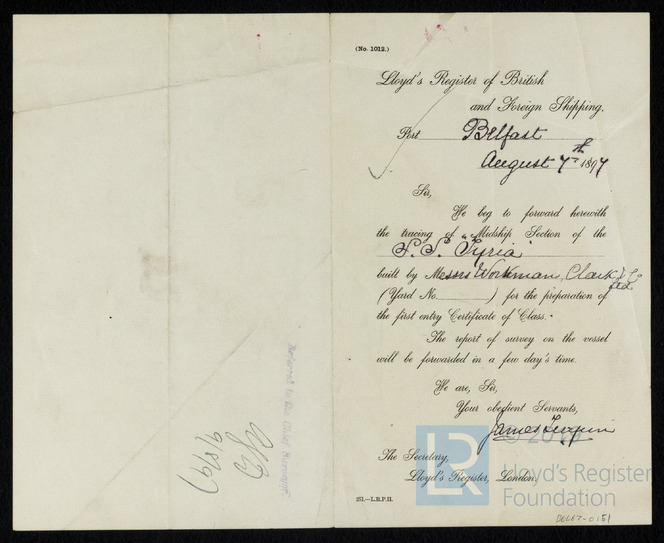 (No. 1012.)
Lloyd's Register of British
and Foreign Shipping.
Port Belfast
August 7th 1897
Sir,
We beg to forward herewith
the tracing of Midship Section of the
S. S. "Tyria"
built by Messrs Workman, Clark & Co
Ltd
(Yard No. ) for the preparation of
the first entry Certificate of Class.
The report of survey on the vessel
will be forwarded in a few day's time.
We are, Sir,
Your obedient Servants,
James Turpin
The Secretary,
Lloyd's Register, London.
251.—L.R.P.H.
LR
Lloyd's Register
Foundation
Referred to the Chief Surveyor
9/8/97